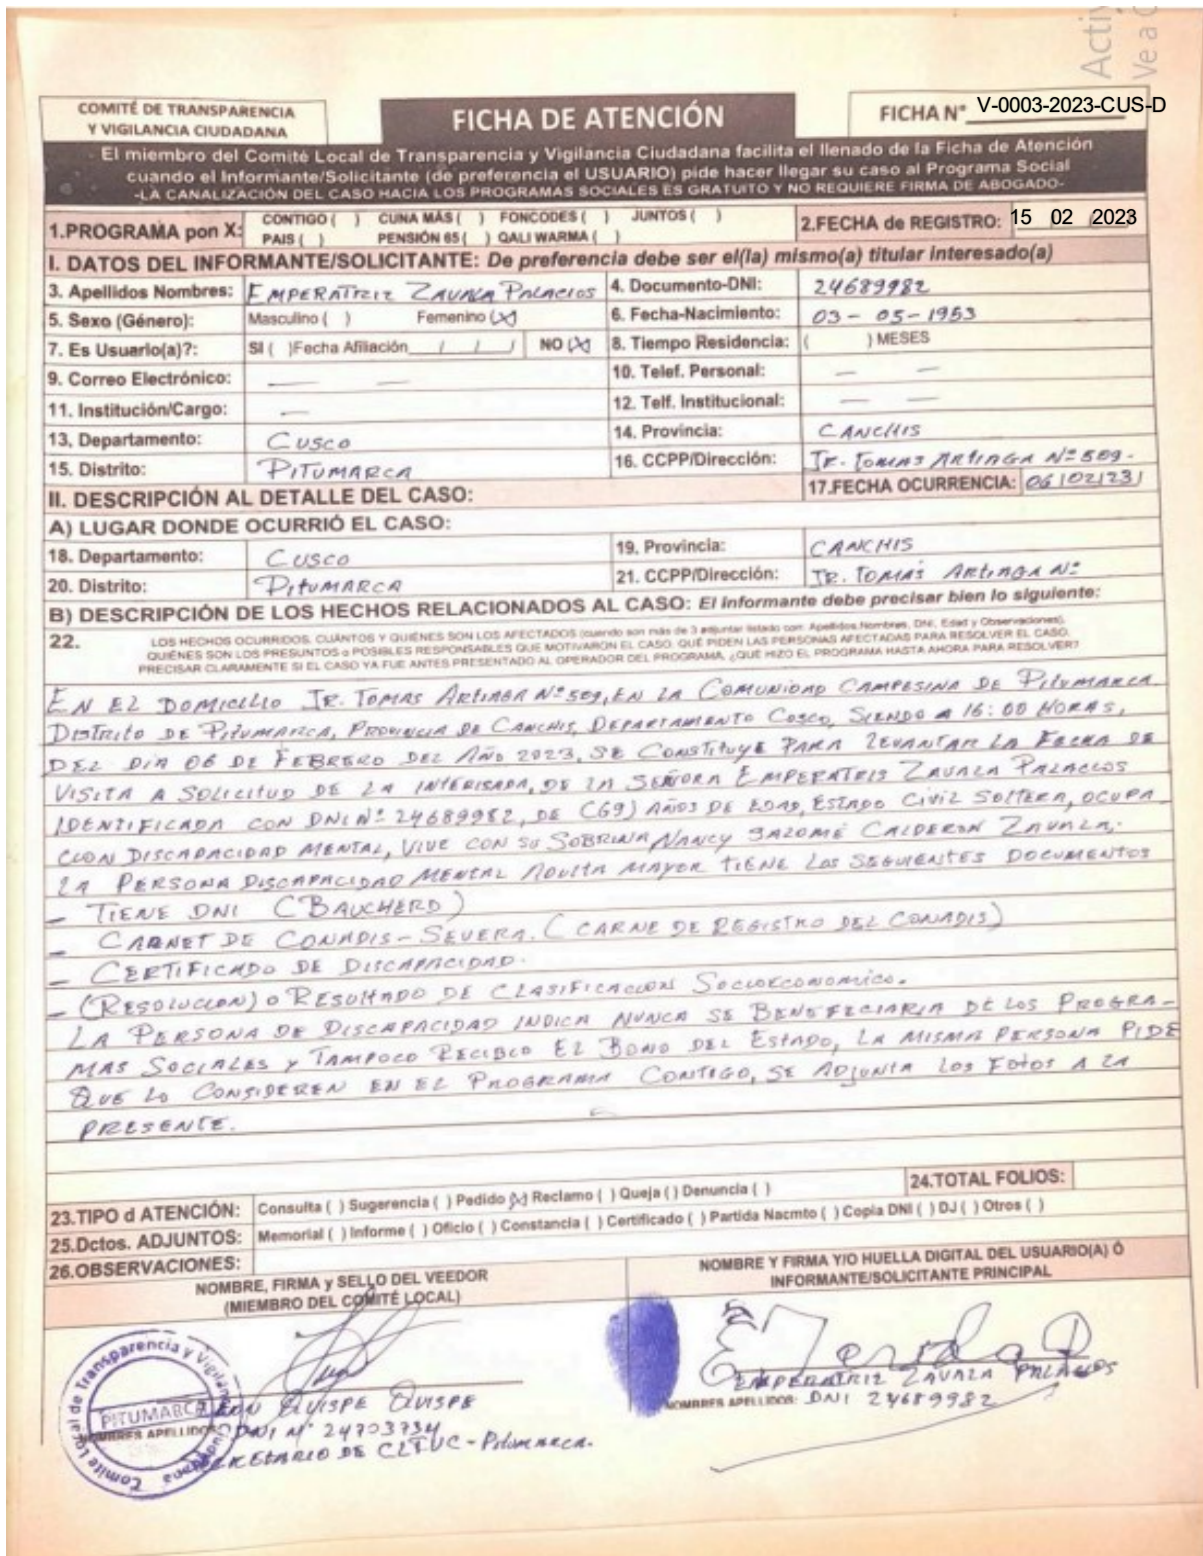 Acti
Ve a C
COMITÉ DE TRANSPARENCIA
Y VIGILANCIA CIUDADANA
FICHA DE ATENCIÓN
FICHA N° V-0003-2023-CUS-D
El miembro del Comité Local de Transparencia y Vigilancia Ciudadana facilita el llenado de la Ficha de Atención
cuando el Informante/Solicitante (de preferencia el USUARIO) pide hacer llegar su caso al Programa Social
-LA CANALIZACIÓN DEL CASO HACIA LOS PROGRAMAS SOCIALES ES GRATUITO Y NO REQUIERE FIRMA DE ABOGADO-
1.PROGRAMA pon X: CONTIGO ( ) CUNA MÁS ( ) FONCODES ( ) JUNTOS ( )
PAIS ( ) PENSIÓN 65 ( ) QALI WARMA ( )
2.FECHA de REGISTRO: 15 02 2023
I. DATOS DEL INFORMANTE/SOLICITANTE: De preferencia debe ser el(la) mismo(a) titular interesado(a)
3. Apellidos Nombres: EMPERATRIZ ZAVALA PALACIOS 4. Documento-DNI: 24689982
5. Sexo (Género): Masculino ( ) Femenino (X) 6. Fecha-Nacimiento: 03 - 05 - 1953
7. Es Usuario(a)?: SI ( )Fecha Afiliación / / / NO (X) 8. Tiempo Residencia: ( ) MESES
9. Correo Electrónico: — — 10. Telef. Personal: — —
11. Institución/Cargo: — 12. Telf. Institucional: — —
13, Departamento: CUSCO 14. Provincia: CANCHIS
15. Distrito: PITUMARCA 16. CCPP/Dirección: JR. TOMAS ARTIAGA Nº 509.
II. DESCRIPCIÓN AL DETALLE DEL CASO: 17.FECHA OCURRENCIA: 06/02/23/
A) LUGAR DONDE OCURRIÓ EL CASO:
18. Departamento: CUSCO 19. Provincia: CANCHIS
20. Distrito: PITUMARCA 21. CCPP/Dirección: JR. TOMAS ARTIAGA Nº
B) DESCRIPCIÓN DE LOS HECHOS RELACIONADOS AL CASO: El informante debe precisar bien lo siguiente:
22. LOS HECHOS OCURRIDOS, CUÁNTOS Y QUIÉNES SON LOS AFECTADOS (cuando son más de 3 adjuntar listado con: Apellidos,Nombres, DNI, Edad y Observaciones).
QUIÉNES SON LOS PRESUNTOS o POSIBLES RESPONSABLES QUE MOTIVARON EL CASO. QUÉ PIDEN LAS PERSONAS AFECTADAS PARA RESOLVER EL CASO.
PRECISAR CLARAMENTE SI EL CASO YA FUE ANTES PRESENTADO AL OPERADOR DEL PROGRAMA, ¿QUÉ HIZO EL PROGRAMA HASTA AHORA PARA RESOLVER?
EN EL DOMICILIO JR. TOMAS ARTIAGA Nº 509, EN LA COMUNIDAD CAMPESINA DE PITUMARCA
DISTRITO DE PITUMARCA, PROVINCIA DE CANCHIS, DEPARTAMENTO COSCO, SIENDO A 16:00 HORAS,
DEL DIA 06 DE FEBRERO DEL AÑO 2023, SE CONSTITUYE PARA LEVANTAR LA FECHA DE
VISITA A SOLICITUD DE LA INTERISADA, DE LA SEÑORA EMPERATRIS ZAVALA PALACIOS
IDENTIFICADA CON DNI Nº 24689982, DE (69) AÑOS DE EDAD, ESTADO CIVIL SOLTERA, OCUPA
CION DISCAPACIDAD MENTAL, VIVE CON SU SOBRINA NANCY SALOMÉ CALDERON ZAVALA.
LA PERSONA DISCAPACIDAD MENTAL ADULTA MAYOR TIENE LOS SEGUIENTES DOCUMENTOS
- TIENE DNI (BAUCHERD)
- CARNET DE CONADIS - SEVERA. (CARNE DE REGISTRO DEL CONADIS)
- CERTIFICADO DE DISCAPACIDAD.
- (RESOLUCION) O RESULTADO DE CLASIFICACION SOCIOECONOMICO.
LA PERSONA DE DISCAPACIDAD INDICA NUNCA SE BENEFECIARIA DE LOS PROGRA-
MAS SOCIALES Y TAMPOCO RECIBIO EL BONO DEL ESTADO, LA MISMA PERSONA PIDE
QUE LO CONSIDEREN EN EL PROGRAMA CONTIGO, SE ADJUNTA LOS FOTOS A LA
PRESENTE.
24.TOTAL FOLIOS:
23.TIPO d ATENCIÓN: Consulta ( ) Sugerencia ( ) Pedido (X) Reclamo ( ) Queja ( ) Denuncia ( )
25.Dctos. ADJUNTOS: Memorial ( ) Informe ( ) Oficio ( ) Constancia ( ) Certificado ( ) Partida Nacmto ( ) Copia DNI ( ) DJ ( ) Otros ( )
26.OBSERVACIONES:
NOMBRE, FIRMA y SELLO DEL VEEDOR
(MIEMBRO DEL COMITÉ LOCAL)
NOMBRE Y FIRMA Y/O HUELLA DIGITAL DEL USUARIO(A) Ó
INFORMANTE/SOLICITANTE PRINCIPAL
Comité Local de Transparencia y Vigilancia Ciudadana
PITUMARCA
QUISPE QUISPE
NOMBRES APELLIDOS: DNI Nº 24703734
SECRETARIO DE CLTVC - Pitumarca.
EMPERATRIZ ZAVALA PALACIOS
NOMBRES APELLIDOS: DNI 24689982